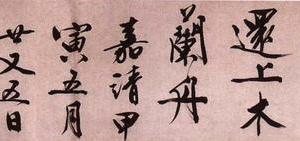 還上木
蘭舟
嘉靖甲
寅五月
廿又五日